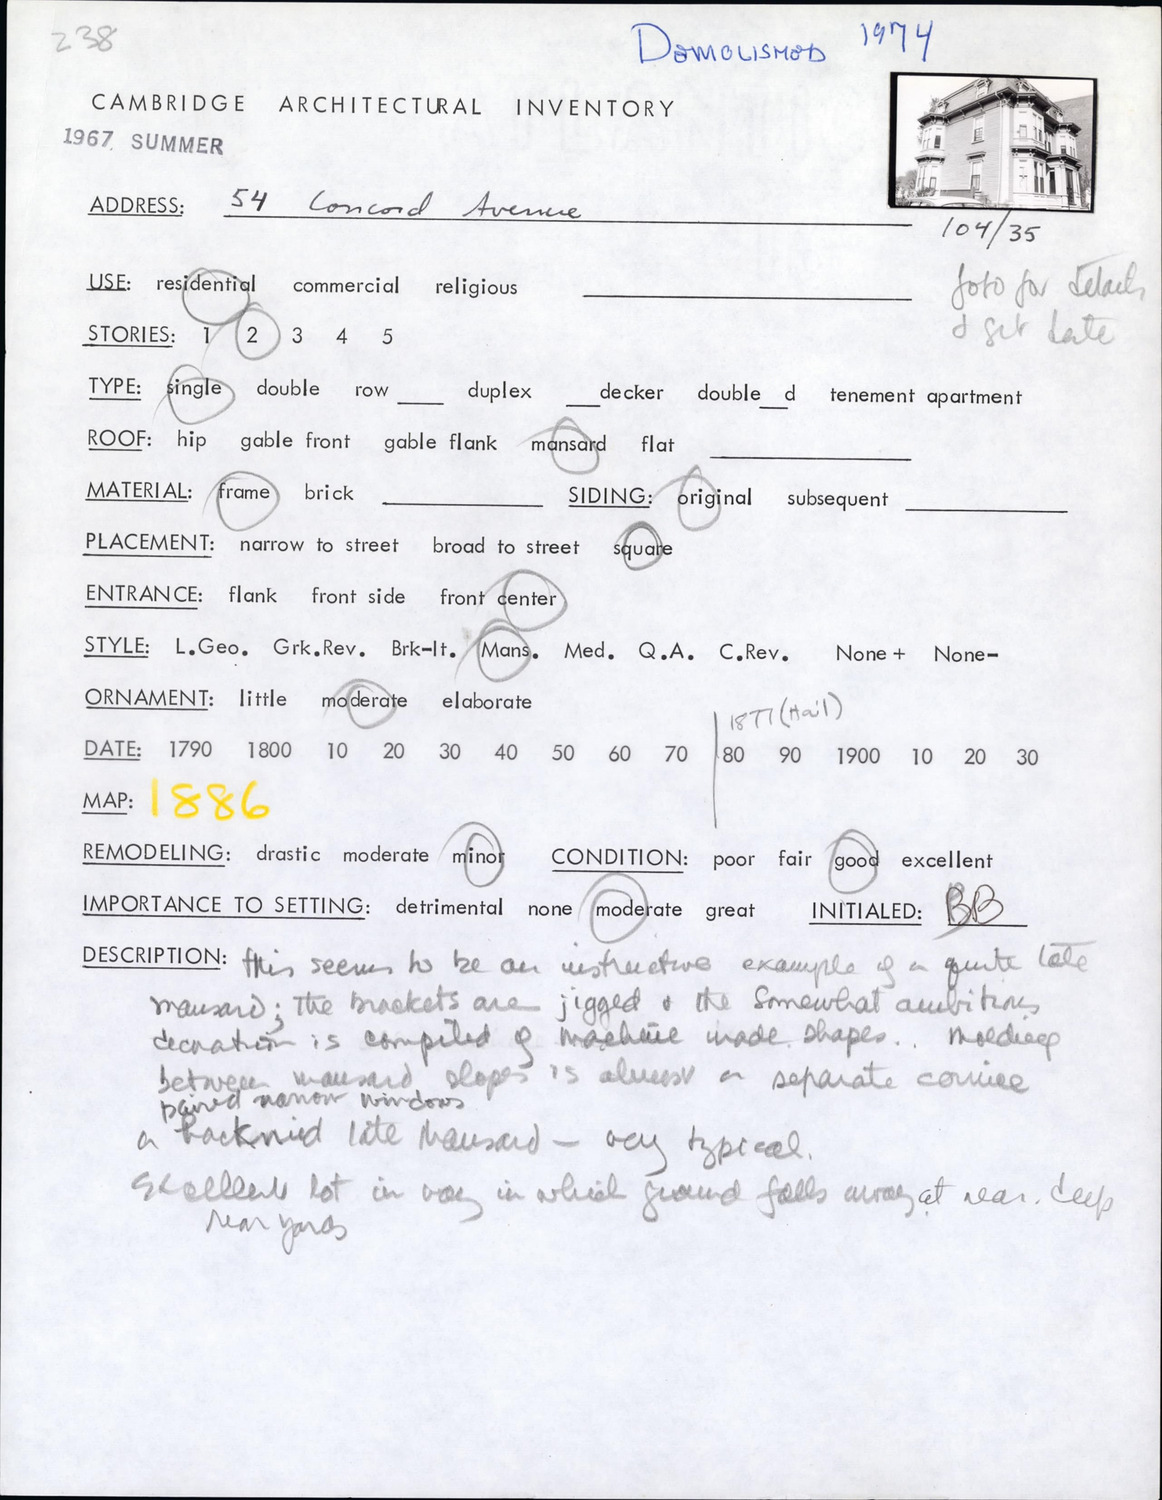 238
DEMOLISHED 1974
CAMBRIDGE ARCHITECTURAL INVENTORY
1967 SUMMER
ADDRESS: 54 Concord Avenue
104/35
foto for details
& get date
USE: residential commercial religious
STORIES: 1 2 3 4 5
TYPE: single double row ____ duplex ___decker double__d tenement apartment
ROOF: hip gable front gable flank mansard flat
MATERIAL: frame brick SIDING: original subsequent
PLACEMENT: narrow to street broad to street square
ENTRANCE: flank front side front center
STYLE: L.Geo. Grk.Rev. Brk-It. Mans. Med. Q.A. C.Rev. None + None-
ORNAMENT: little moderate elaborate
1877 (Hail)
DATE: 1790 1800 10 20 30 40 50 60 70 80 90 1900 10 20 30
MAP: 1886
REMODELING: drastic moderate minor CONDITION: poor fair good excellent
IMPORTANCE TO SETTING: detrimental none moderate great INITIALED: BB
DESCRIPTION: this seems to be an instructive example of a quite late
mansard; the brackets are jigged & the somewhat ambitious
decoration is compiled of machine made shapes.. Molding
between mansard slopes is almost a separate cornice
paired narrow windows
a hacknied late Mansard – very typical.
Excellent lot in way in which ground falls away at rear. deep
rear yards